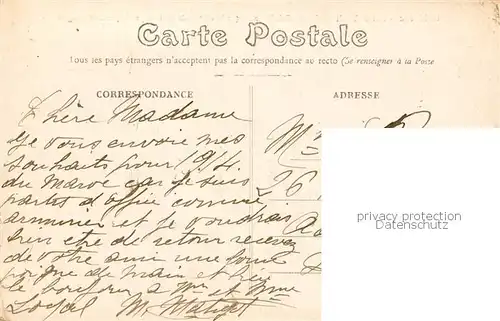 Carte Postale
Tous les pays étrangers n'acceptent pas la correspondance au recto (Se renseigner à la Poste
CORRESPONDANCE
ADRESSE
Chère Madame
Je vous envoie mes
souhaits pour 1914.
du Maroc car je suis
partit d'office comme
armurier et je voudrais
bien etre de retour recevez
de votre ami une bonne
poigne de main et bien
le bonjour a Mr et Mme
Loyal M.
M
26
privacy protection
Datenschutz